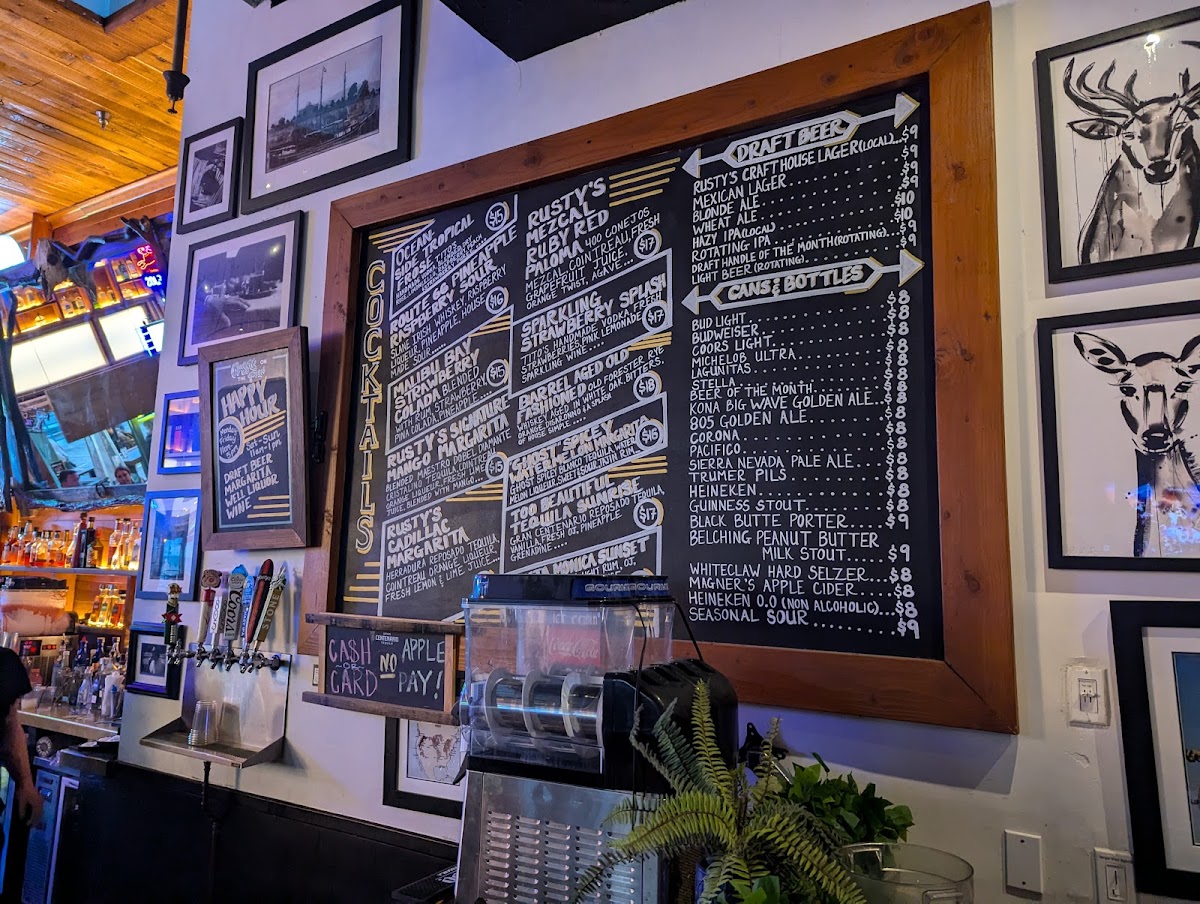 COCKTAILS
OCEAN
SIDE TROPICAL
FROSE
TITO'S
$15
ROUTE 66 PINEAPPLE
RASPBERRY SOUR
SLANE IRISH WHISKEY, RASPBERRY
PUREE, PINEAPPLE, HOUSE
SOUR
$16
MALIBU BAY
STRAWBERRY
COLADA BLENDED
WITH RUM, STRAWBERRY,
PINA COLADA, PINEAPPLE
$15
RUSTY'S SIGNATURE
MANGO MARGARITA
BLENDED MAESTRO DOBEL DIAMANTE
CRISTALINO TEQUILA, COINTREAU
ORANGE LIQUEUR, FRESH LIME
JUICE, BLENDED WITH MANGO
$15
RUSTY'S
CADILLAC
MARGARITA
HERRADURA REPOSADO TEQUILA,
COINTREAU ORANGE LIQUEUR,
FRESH LEMON & LIME JUICE
RUSTY'S
MEZCAL
RUBY RED
PALOMA
400 CONEJOS
MEZCAL, COINTREAU, FRESH
GRAPEFRUIT JUICE,
ORANGE TWIST, AGAVE....
$17
SPARKLING
STRAWBERRY SPLASH
TITO'S HANDMADE VODKA, FRESH
STRAWBERRIES, PINK LEMONADE
SPARKLING WINE
$17
BARREL AGED OLD
FASHIONED
OLD FORESTER RYE
WHISKEY AGED IN WHITE OAK, BITTERS,
ORANGE, DISARONNO & A SPLASH
OF HOUSE SIMPLE
$18
GHOST SPICY
WATERMELON MARGARITA
GHOST SPICY BLANCO TEQUILA, WATER
MELON LIQUEUR, SWEET & SOUR, TAJIN RIM
$16
TOO BEAUTIFUL
TEQUILA SUNRISE
GRAN CENTENARIO REPOSADO TEQUILA,
VANILLA, FRESH OJ, PINEAPPLE
GRENADINE
$17
MONICA SUNSET
RUM, OJ,
DRAFT BEER
RUSTY'S CRAFT HOUSE LAGER (LOCAL)...$9
MEXICAN LAGER........$9
BLONDE ALE........$9
WHEAT ALE........$9
HAZY IPA (LOCAL)........$10
ROTATING IPA........$10
DRAFT HANDLE OF THE MONTH (ROTATING)...$9
LIGHT BEER (ROTATING)........$9
CANS & BOTTLES
BUD LIGHT........$8
BUDWEISER........$8
COORS LIGHT........$8
MICHELOB ULTRA........$8
LAGUNITAS........$8
STELLA........$8
BEER OF THE MONTH........$8
KONA BIG WAVE GOLDEN ALE...$8
805 GOLDEN ALE........$8
CORONA........$8
PACIFICO........$8
SIERRA NEVADA PALE ALE....$8
TRUMER PILS........$8
HEINEKEN........$8
GUINNESS STOUT........$8
BLACK BUTTE PORTER.......$9
BELCHING PEANUT BUTTER
MILK STOUT...$9
WHITECLAW HARD SELZER....$8
MAGNER'S APPLE CIDER.....$8
HEINEKEN 0.0 (NON ALCOHOLIC)...$8
SEASONAL SOUR........$9
HAPPY
HOUR
Sat-Sun
11am-1pm
DRAFT BEER
MARGARITA
WELL LIQUOR
WINE
CENTENARIO
CA$H
OR
CARD
NO
APPLE
PAY!
GOURMET
Coca-Cola